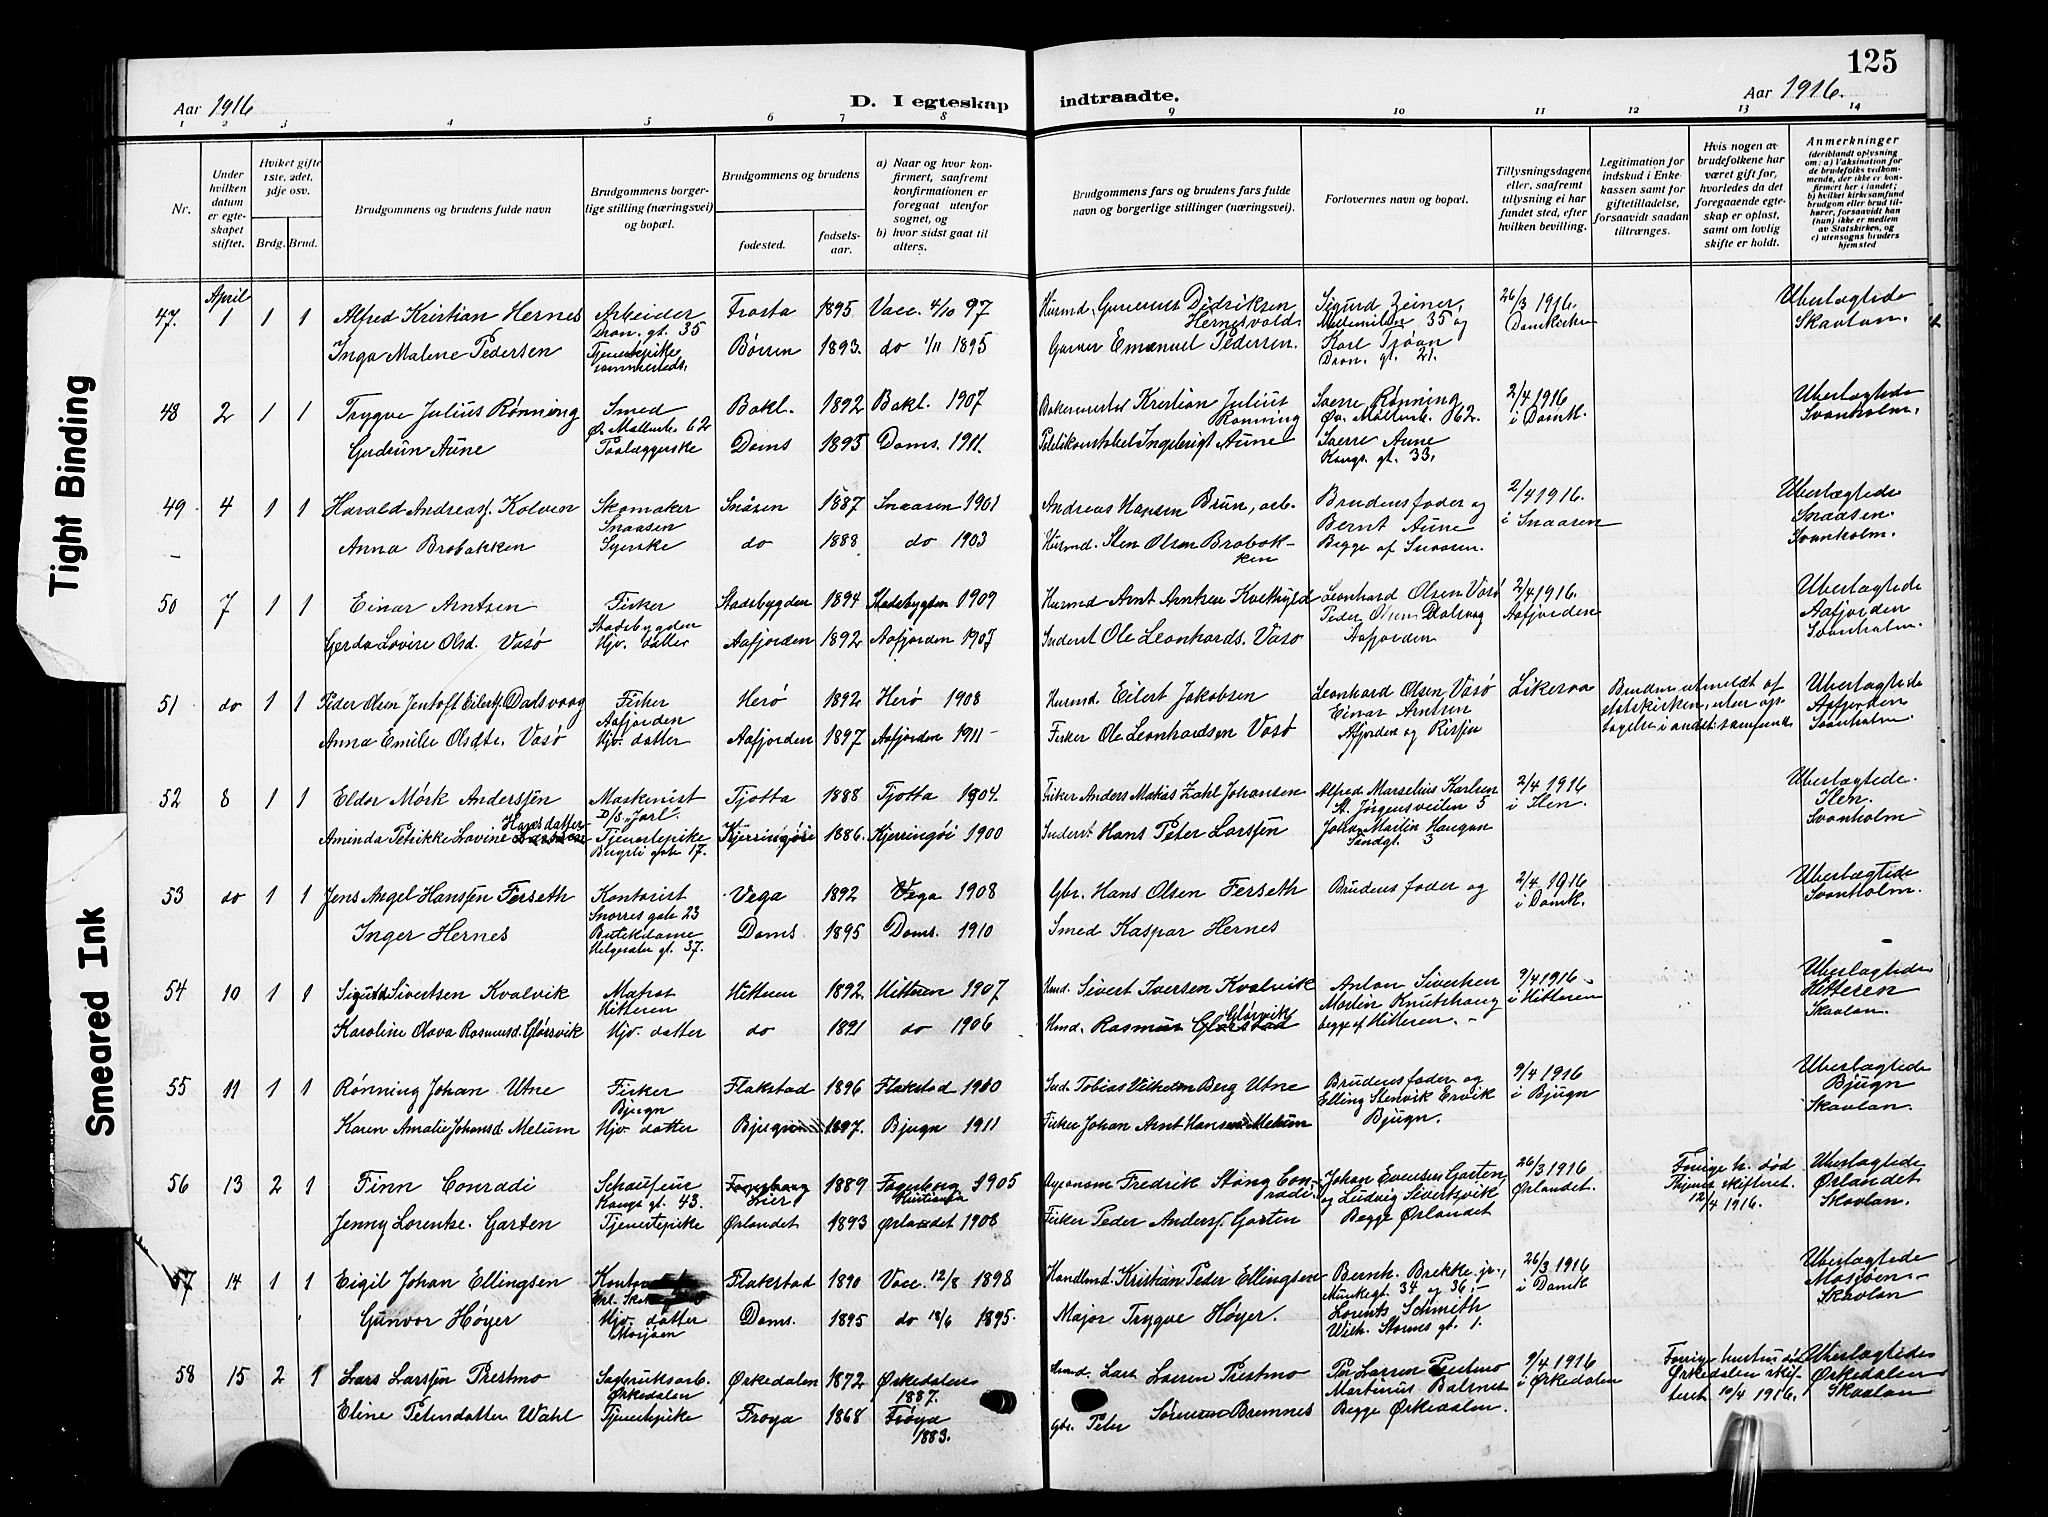 125
Aar 1916
D. I egteskap indtraadte.
Aar 1916.
1 2 3 4 5 6 7 8 9 10 11 12 13 14
Nr.
Under hvilken datum er egteskapet stiftet.
Hviket gifte 1ste, 2det, 3dje osv.
Brdg. Brud.
Brudgommens og brudens fulde navn
Brudgommens borgerlige stilling (næringsvei) og bopæl.
Brudgommens og brudens
fødested. fødselsaar.
a) Naar og hvor konfirmert, saafremt konfirmationen er foregaat utenfor sognet, og
b) hvor sidst gaat til alters.
Brudgommens fars og brudens fars fulde navn og borgerlige stillinger (næringsvei).
Forlovernes navn og bopæl.
Tillysningsdagene eller, saafremt tillysning ei har fundet sted, efter hvilken bevilling.
Legitimation for indskud i Enkekassen samt for giftetilladelse, forsaavidt saadan tiltrænges.
Hvis nogen av brudefolkene har været gift før, hvorledes da det foregaaende egteskap er opløst, samt om lovlig skifte er holdt.
Anmerkninger (deriblandt oplysning om: a) Vaksination for de brudefolks vedkommende, der ikke er konfirmert her i landet; b) hvilket kirkesamfund brudgom eller brud tilhører, forsaavidt han (hun) ikke er medlem av Statskirken, og c) utensogns bruders hjemsted
April
47. 1 1 1 Alfred Kristian Hernes Arbeider Dron. gt. 35 Frosta 1895 Vacc. 4/10 97 Husmd. Didriksen Hernesvold Sigurd Zeiner, 35 og 26/3 1916. Domkirken Uberlagtede Skavlan.
Inga Malene Pedersen Tjenestepike sammesteds. Børsen 1893. do 1/11 1895 Garver Emanuel Pedersen. Karl Dron. gt. 21.
48 2 1 1 Trygve Julius Rønning Smed Ø. Møllenb. 62 Bakl. 1892 Bakl. 1907 Bakermester Kristian Julius Rønning Sverre Rønning Øv. Møllenb. 62. 2/4 1916 i Domk. Uberlagtede Svanholm.
Gudrun Aune Paalæggerske Doms 1893 Doms. 1911. Politikonstabel Ingebrigt Aune Sverre Aune Kongs. gt. 33.
49 4 1 1 Harald Andreasf. Kolven Skomaker Snaasen Snåsen 1887 Snaasen 1901 Andreas Hansen Brun, arb. Brudens fader og Bernt Aune 2/4 1916. i Snaasen Uberlagtede Snaasen. Svanholm.
Anna Brobakken Syerske do 1888 do 1903 Husmd. Sten Olsen Brobakken Begge af Snaasen.
50 7 1 1 Einar Arntsen Fisker Stadsbygden Stadsbygden 1894 Stadsbygden 1909 Husmd Arnt Arntsen Kvithyld Leonhard Olsen Vasø 2/4 1916. Aafjorden Uberlagtede Aafjorden Svanholm.
Gerda Lovise Olsd. Vasø Hjv. datter Aafjorden 1892 Aafjorden 1907 Inderst Ole Leonhards. Vasø Peder Olsen Dalsvaag Aafjorden
51 do 1 1 Peder Olsen Jentoft Eilertsf. Dadsvaag Fisker Aafjorden Herø 1892 Herø 1908 Husmd. Eilert Jakobsen Leonhard Olsen Vasø Einar Arntsen Likesaa Bruden utmeldt af statskirken, uten optagelse i andet samfund. Uberlagtede Aafjorden Svanholm.
Anna Emilie Olsdtr. Vasø Hjv. datter Aafjorden 1897 Aafjorden 1911 – Fisker Ole Leonhardsen Vasø Afjorden og Rissen
52 8 1 1 Eldor Mørk Anderssen Maskinist D/S. Jarl. Tjøtta 1888 Tjøtta 1904. Fisker Anders Matias Zahl Johansen Alfred Marselius Karlsen St. Jørgensveiten 5 2/4 1916 i Ilen. Uberlagtede. Ilen. Svanholm
Aminda Petrikke Lovine Hansdatter Tjenestepike Bugsli gate 17. Kjerringøi 1886. Kjerringøi 1900 Inderst Hans Peter Larssen Johan Martin Haugan Sandgt. 3
53 do 1 1 Jens Angel Hanssen Forseth Kontorist Snorres gate 23 Vega 1892 Vega 1908 Gbr. Hans Olsen Forseth Brudens fader og 2/4 1916 i Domk. Uberlagtede Svanholm.
Inger Hernes Butikdame gt. 37. Doms 1895 Doms. 1910 Smed Kaspar Hernes
54 10 1 1 Sigurd Sivertsen Kvalvik Matros Hitteren Hitteren 1892 Hitteren 1907 Husmd. Sivert Iversen Kvalvik Anton Sivertsen 9/4 1916 – i Hitteren Uberlagtede Hitteren Skavlan.
Karoline Olava Rasmusd. Glørsvik Hjv. datter do 1891 do 1906 Husmd. Rasmus Glørsvik Martin Knutshaug begge af Hitteren. –
55 11 1 1 Rønning Johan Utne Fisker Bjugn Flakstad 1896 Flakstad 1910 Ind. Tobias Vilhelm Berg Utne Brudens fader og 9/4 1916 i Bjugn Uberlagtede Bjugn Skavlan.
Karen Amalie Johansd Melum Hjv. datter Bjugn 1897. Bjugn 1911 Fisker Johan Arnt Hansen Melum Elling Stenvik Ervik Bjugn.
56 13 2 1 Finn Conradi Schaufeur Kongs gt. 43. Lier 1889 Fagerborg Kristiania 1905 Agronom Fredrik Stang Conradi Johan Evensen Garten og Ludvig Sivertsvik 26/3 1916 Ørlandet. Forrige h. død Thjems skifteret. 12/4 1916. Uberlagtede Ørlandet Skavlan.
Jenny Lorentze. Garten Tjenestepike Ørlandet 1893 Ørlandet 1908 Fisker Peder Andersf. Garten Begge Ørlandet
57 14 1 1 Eigil Johan Ellingsen Flakstad 1890 Vacc. 12/8 1898 Handlmd. Kristian Peder Ellingsen Bernh. Brekke jr., Munkegt. 34 og 36. – 26/3 1916 i Domk Uberlagtede Mosjøen – Skavlan
Gunvor Høyer Hjv. datter Mosjøen Doms. 1895 do 18/6 1895. Major Trygve Høyer. Lorents Schmith Wilh. Storms gt. 1.
58 15 2 1 Lars Larssen Prestmo Sagbruksarb. Orkedalen Ørkedalen 1872 Ørkedalen 1887. Husmd. Lars Larsen Prestmo Per Larsen Prestmo 9/4 1916 i Ørkedalen Forrige hustru død Ørkedalen skifteret 10/4 1916. Uberlagtede Ørkedalen Skavlan
Eline Petersdatter Wahl Tjenestepike Frøya 1868 Frøya 1883. Gbr. Peter Sørensen Bremnes Martinus Balsnes Begge Ørkedalen.
Tight Binding
Smeared Ink